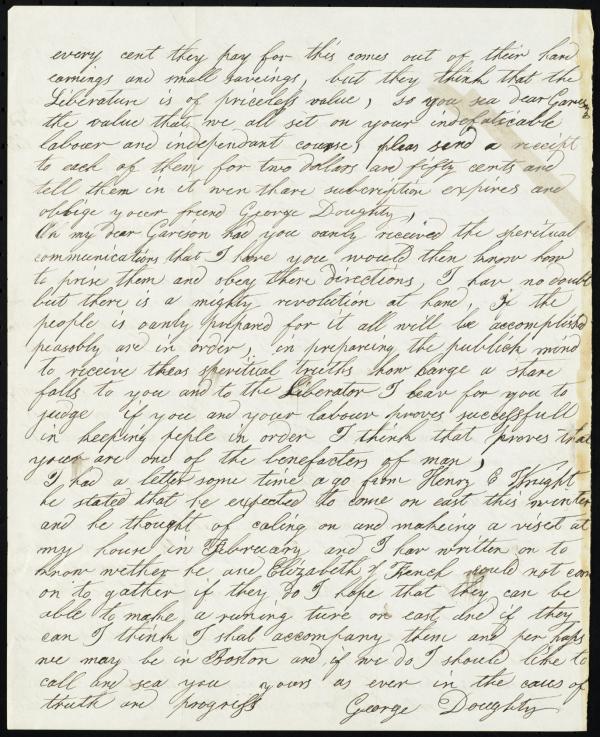 every cent they pay for this comes out of their hard
earnings and small saveings, but they think that the
Liberature is of priceless value, so you sea dear Garisn
the value that we all set on your indefatecable
labour and independant course, pleas send a receipt
to each of them for two dollars and fifty cents and
tell them in it wen thare subcription expires and
oblige your friend George Doughty,
Oh my dear Garison had you oanly received the speritual
communications that I have you would then know how
to prise them and obey there directions, I hav no doubt
but there is a mighty revolution at hand, If the
people is oanly prepared for it all will be accomplised
peasobly and in order, in prepareing the publick mind
to receive theas speritual truths how large a share
falls to you and to the Liberator I leav for you to
judge if you and your labour proves successfull
in keeping peple in order I think that proves that
your are one of the benefacters of man,
I had a letter some time ago from Henry C Wright
he stated that he expected to come on east this winter
and he thought of caling on and makeing a viset at
my house in February and I hav written on to
know wether he and Elizabeth J French would not com
on to gather if they do I hope that they can be
able to make a runing ture on east, and if they
can I think I shal accompany them and per paps
we may be in Boston and if we do I should like to
call and sea you yours as ever in the caus of
truth and progress George Doughty